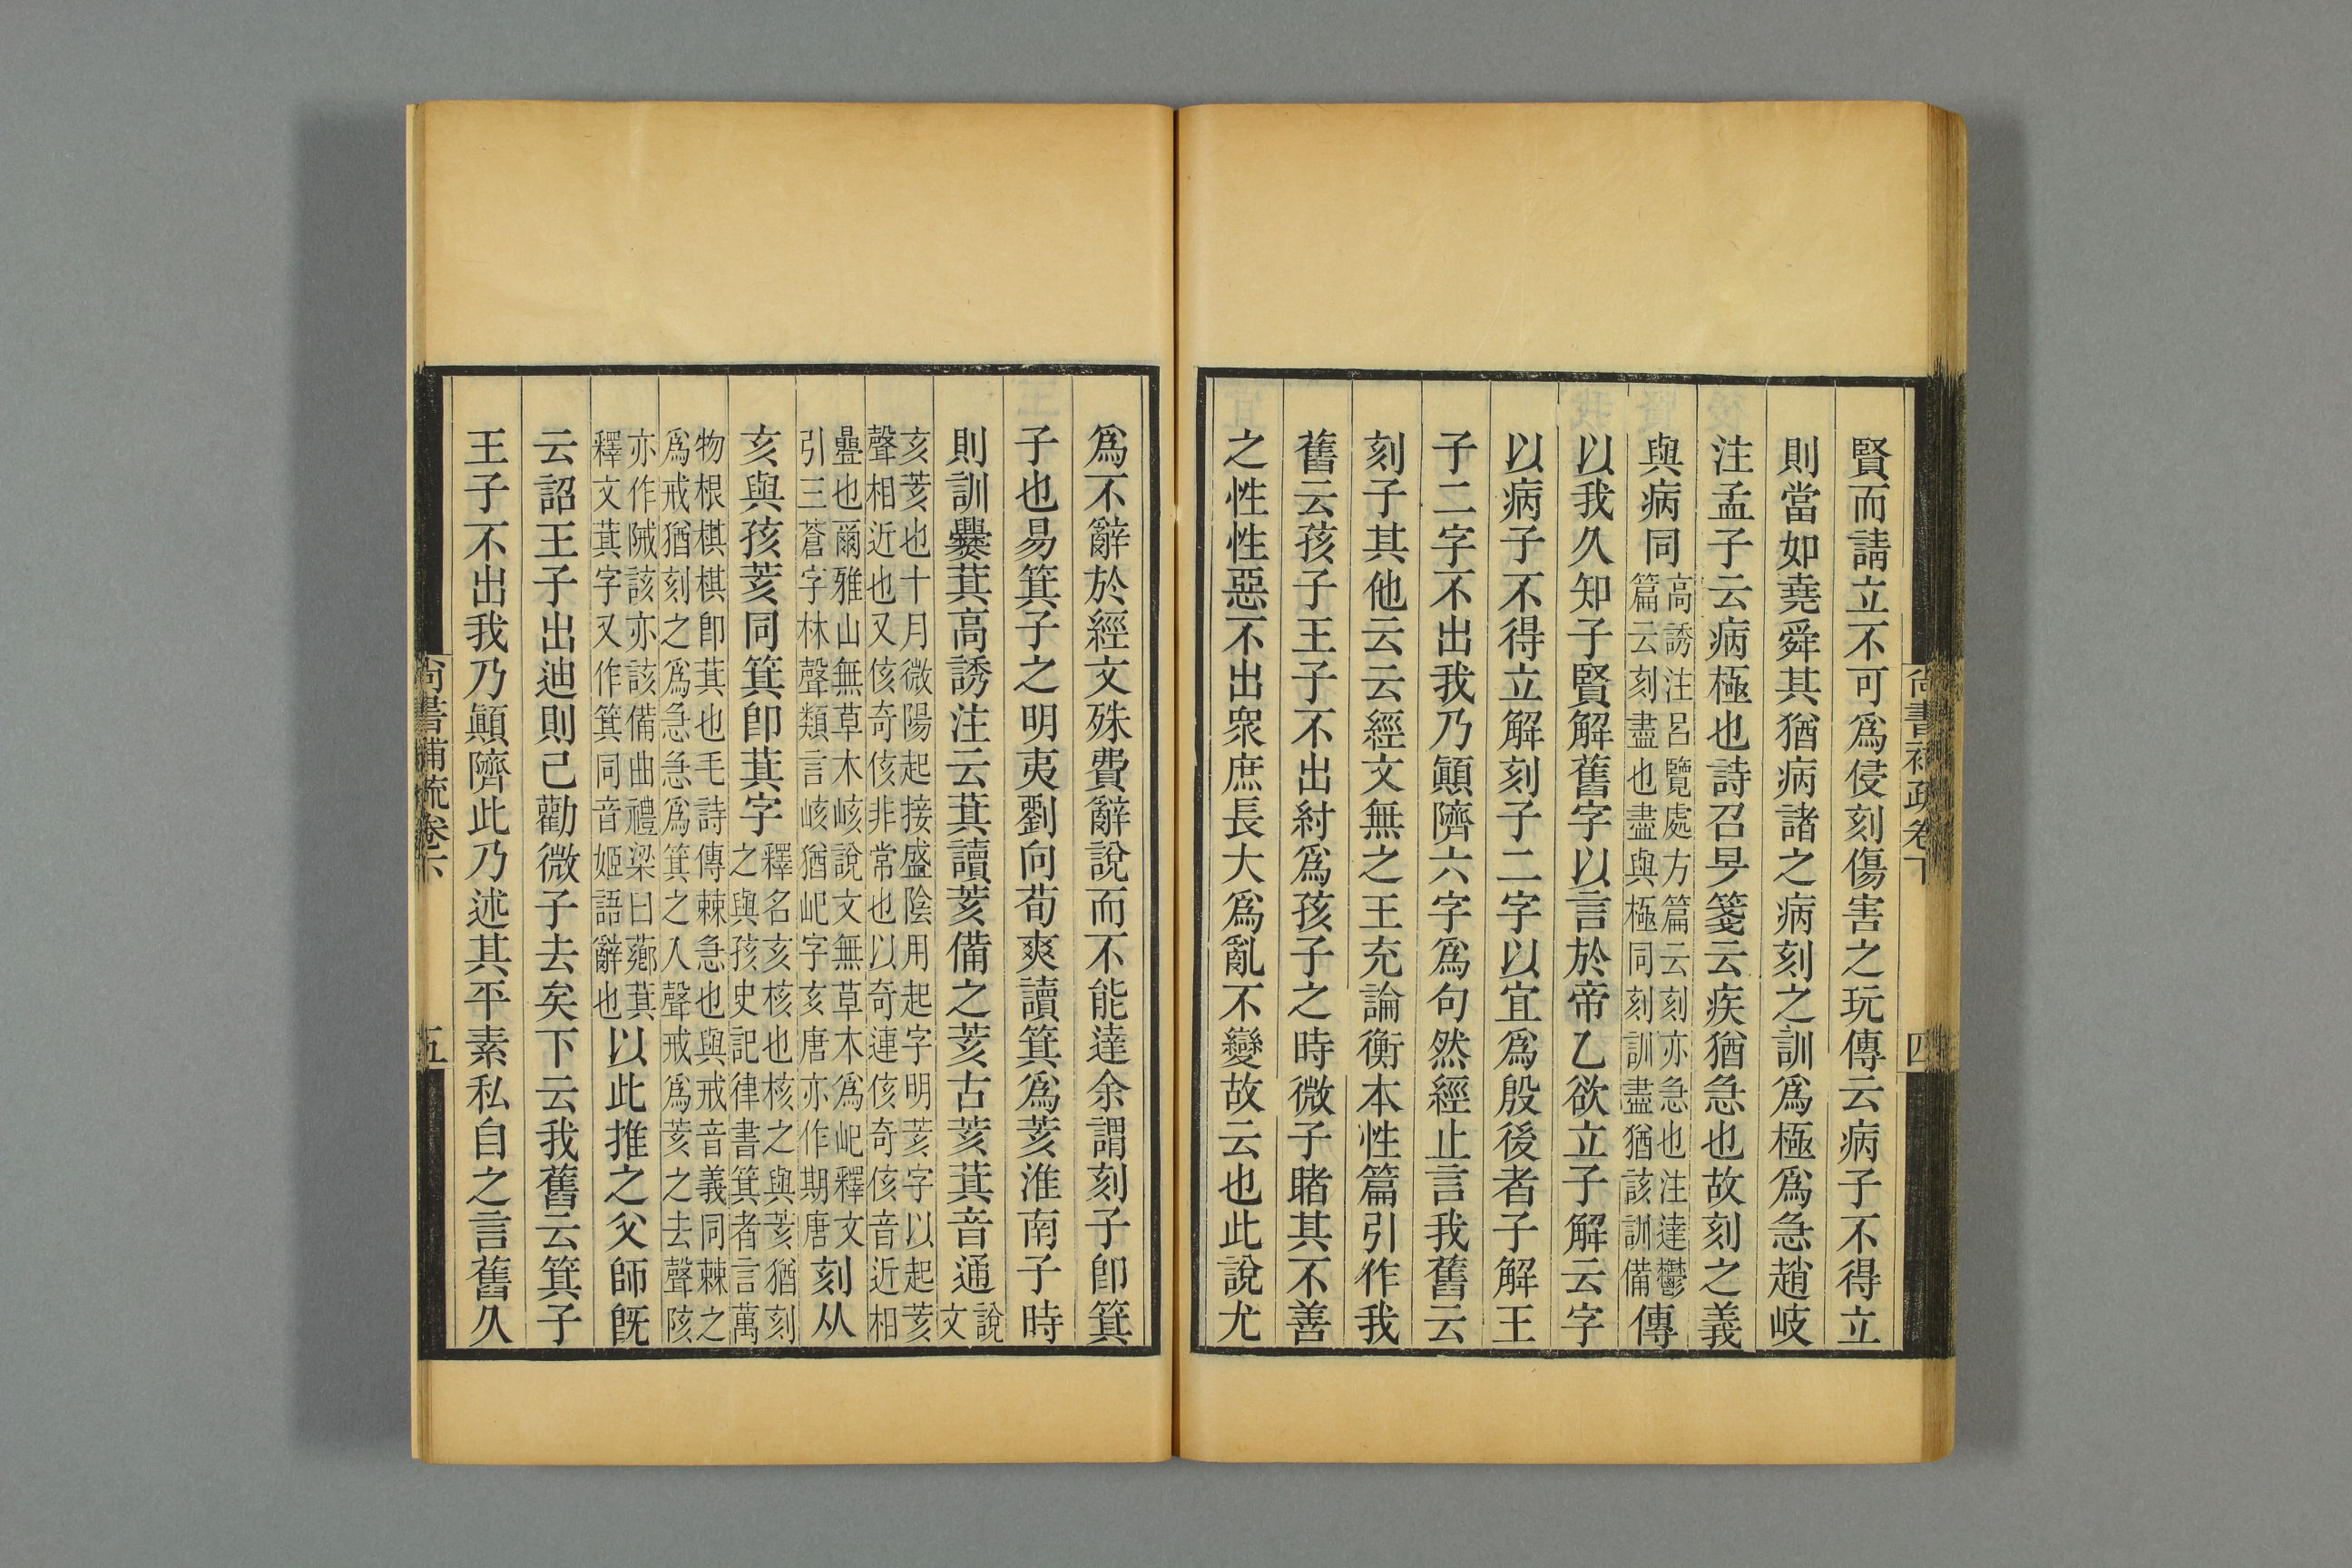 尚書補疏卷下
四
賢而請立不可爲侵刻傷害之玩傳云病子不得立
則當如堯舜其猶病諸之病刻之訓爲極爲急趙岐
注孟子云病極也詩召旻箋云疾猶急也故刻之義
與病同高誘注呂覽處方篇云刻亦急也注達鬱篇云刻盡也盡與極同刻訓盡猶該訓備傳
以我久知子賢解舊字以言於帝乙欲立子解云字
以病子不得立解刻子二字以宜爲殷後者子解王
子二字不出我乃顚隮六字爲句然經止言我舊云
刻子其他云云經文無之王充論衡本性篇引作我
舊云孩子王子不出紂爲孩子之時微子睹其不善
之性性惡不出衆庶長大爲亂不變故云也此說尤
爲不辭於經文殊費辭說而不能達余謂刻子卽箕
子也易箕子之明夷劉向荀爽讀箕爲荄淮南子時
則訓爨萁高誘注云萁讀荄備之荄古荄萁音通說文
亥荄也十月微陽起接盛陰用起字明荄字以起荄聲相近也又侅奇侅非常也以奇連侅奇侅音近相
疊也爾雅山無草木峐說文無草木爲屺釋文引三蒼字林聲類言峐猶屺字亥唐亦作期唐刻从
亥與孩荄同箕卽萁字釋名亥核也核之與荄猶刻之與孩史記律書箕者言萬
物根棋棋卽萁也毛詩傳棘急也與戒音義同棘之爲戒猶刻之爲急急爲箕之入聲戒爲荄之去聲陔
亦作陚該亦該備曲禮梁曰薌萁釋文萁字又作箕同音姬語辭也以此推之父師旣
云詔王子出迪則己勸微子去矣下云我舊云箕子
王子不出我乃顚隮此乃述其平素私自之言舊久
尚書補疏卷下
五